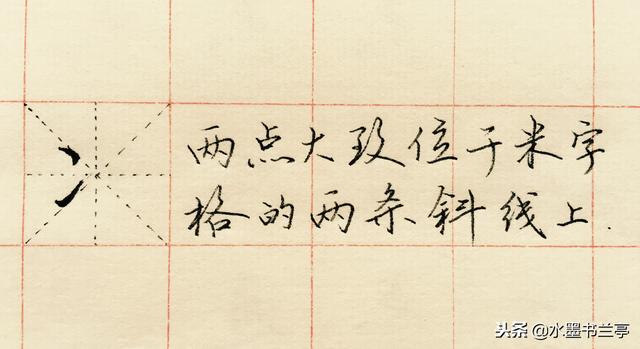 冫
两点大致位于米字
格的两条斜线上.
头条@水墨书兰亭